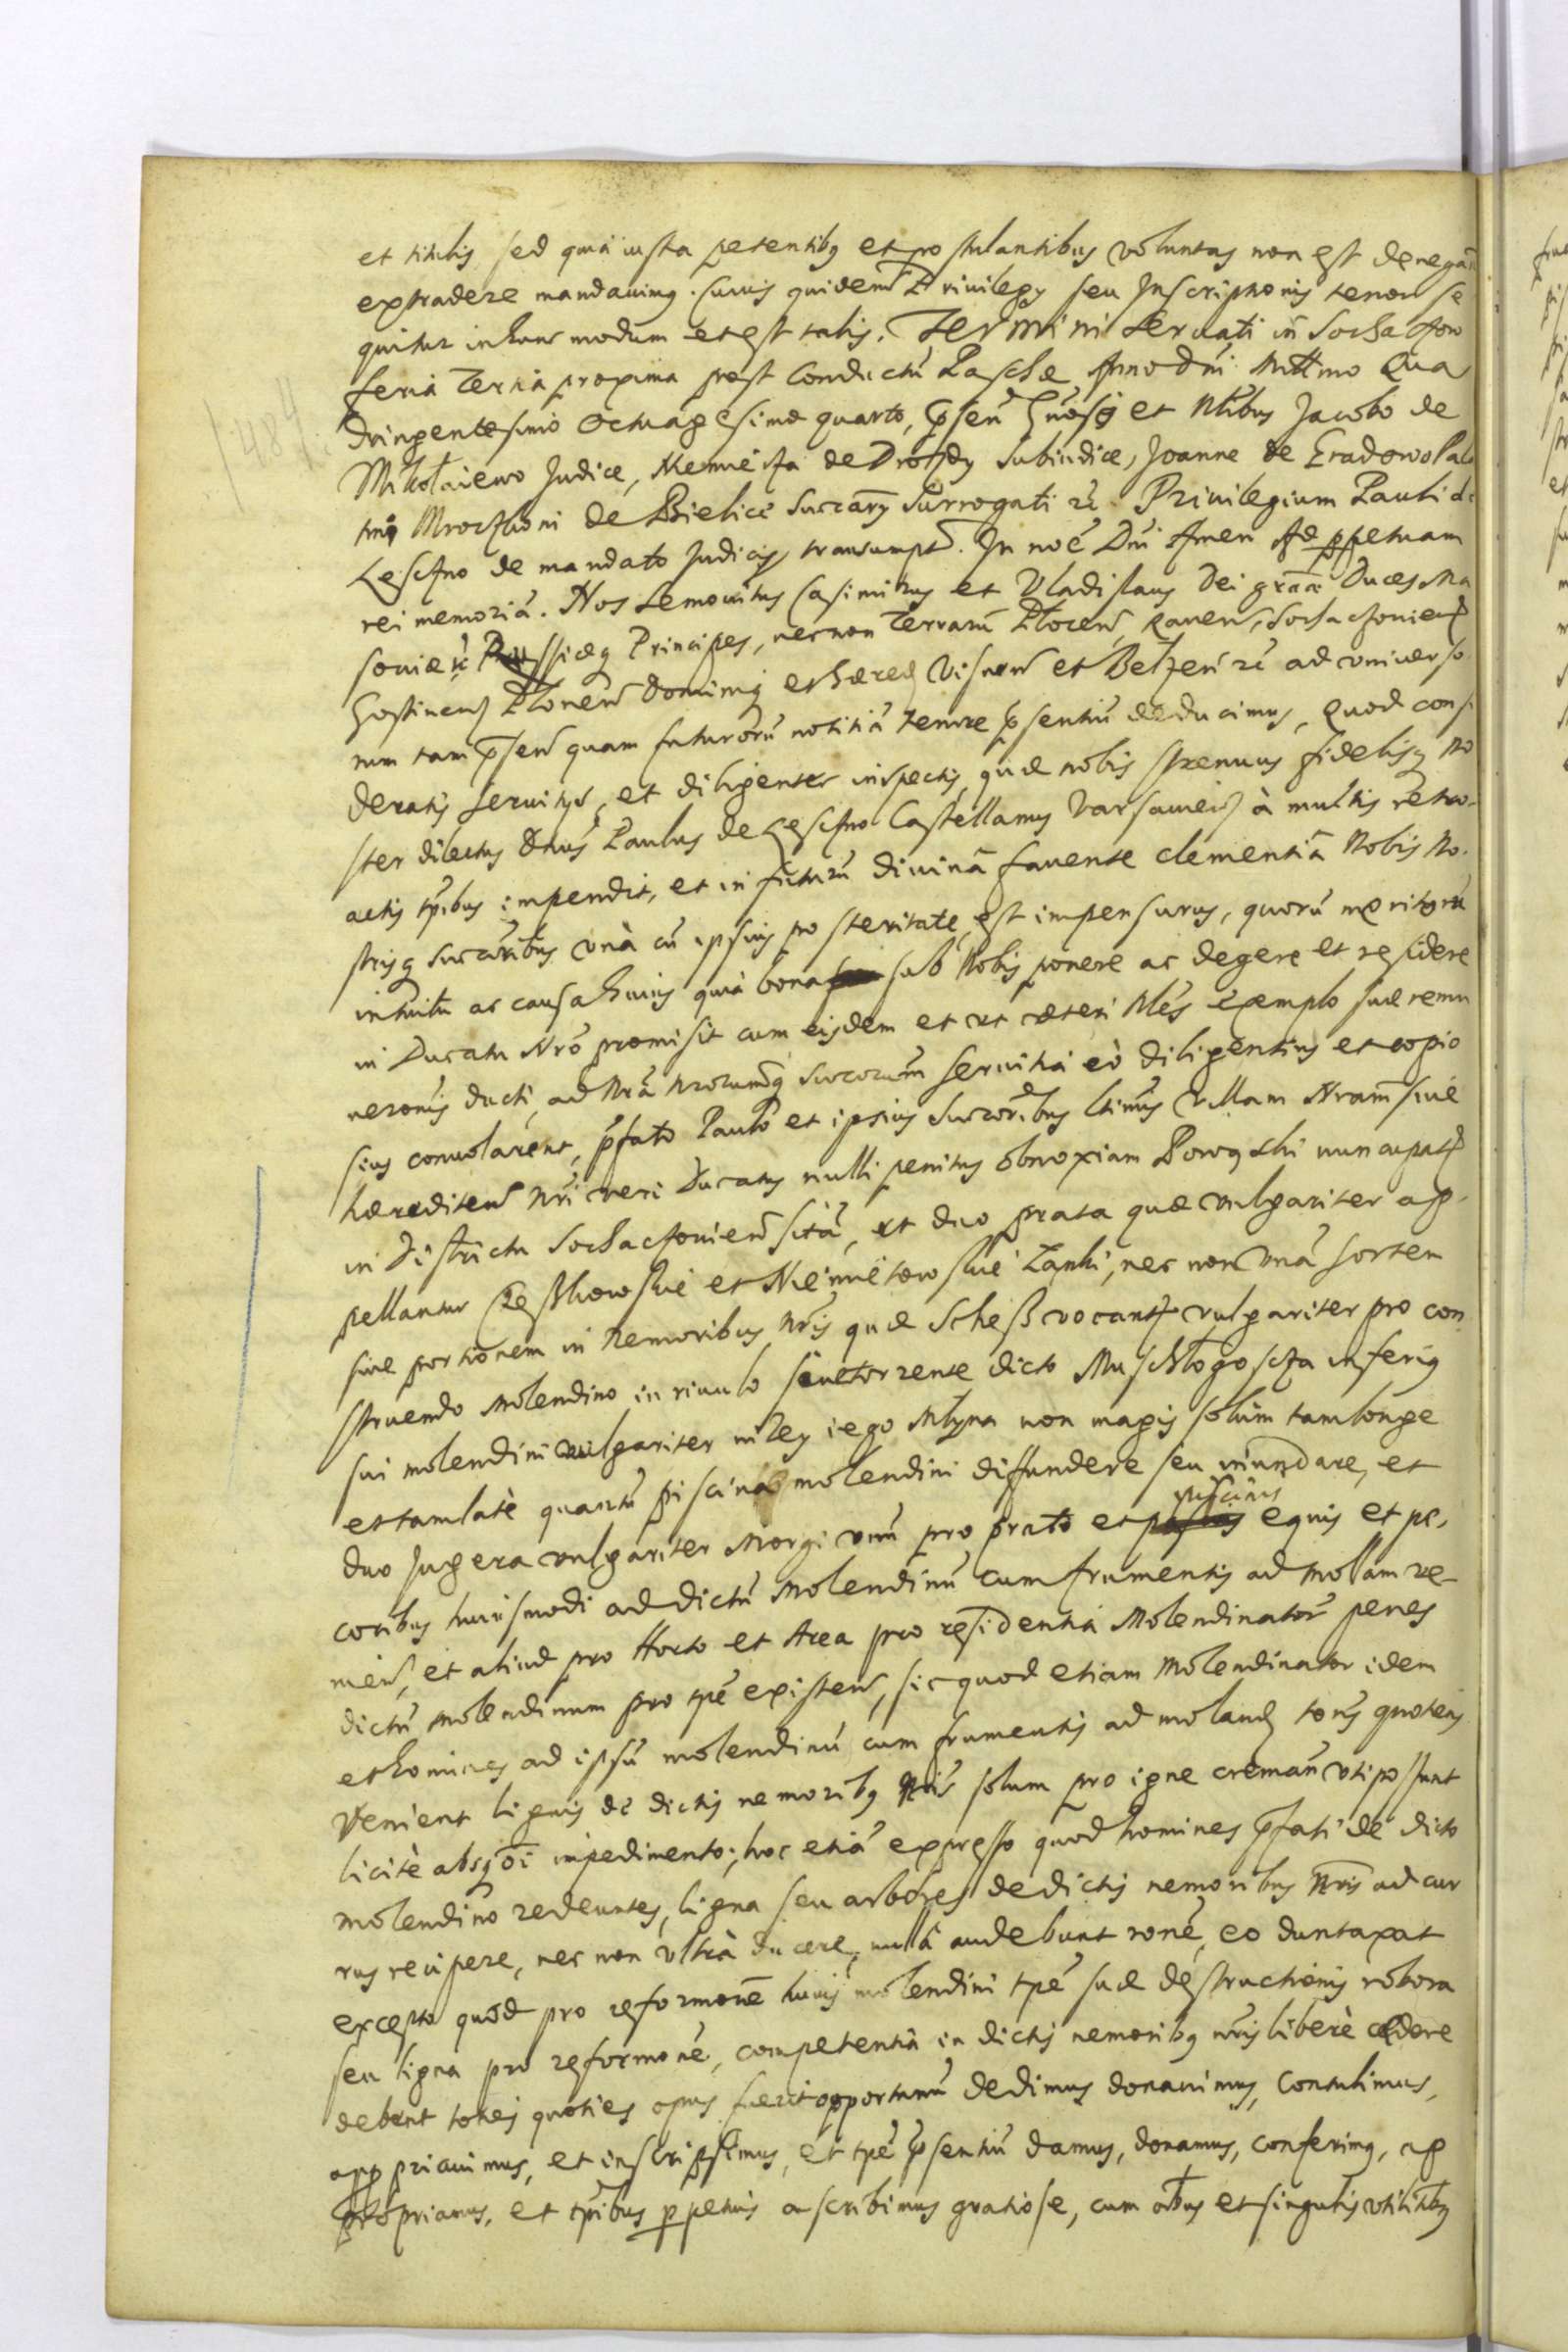 et titulis sed quia iusta petentibq et postulantibus voluntas non est denegan
extradere mandauimq. Cuius quidem Priuilegy seu Inscriptionis tenor se
quitur in hunc modum et est talis. Termini seruati in Sochaczow
feria Tertia proxima post Conductũ Paschæ Anno Dni Millmo Qua
1484.
dringentesimo Octuagesimo quarto, pñsen Gñosis et Nlibus Jacobo de
Mikołaiewo Judice, Niemieszta de Drozdy Subiudice, Joanne de Gradowo Pala
tinq Mroczkoni de Bielice Succary Surrogati &c. Priuilegium Pauli de
Leschno de mandato Judicij transumpt. In noe Dni Amen Ad ppetuam
rei memoriã. Nos Semouitus Casimirus et Vladislaus Dei grãa Duces Ma
souiæ &c Russiæq Principes, necnon Terrarũ Plocen, Rauen, Sochaczouien
Gostinen Plonen Dominiq et hæred Visnen et Belzen &c ad vniuerso
rum tam pñsen quam futurorũ notitiã tenore pñsentiũ deducimus, Quod consi
deratis seruitys, et diligenter inspectis, quæ nobis strenuus fidelisq no
ster dilectus Dnus Paulus de Leschno Castellanus Varsauien à multis retro-
actis tpibus impendit, et in futurũ diuinã fauente clementiã Nobis No-
strisq succoribus vnà cũ ipsius posteritate est impensurus, quorũ meritorũ
intuitu ac causa huius quià bona sub Nobis ponere ac degere et residere
in Ducatu Nro promisit cum eisdem et vt cæteri Nles exemplo suæ remu
neronis ducti, ad Nrã nrorumq succorum seruitia eò diligentius et copio
sius conuolarent, pfato Paulo et ipsius succoribus ltimis Villam Nram siue
hæreditem Nri veri Ducatus nulli penitus obnoxiam Boryszki nuncupat
in Districtu Sochaczouien sitã, et duo prata quæ vulgariter ap-
pellantur et Niemietowskie Łąnki, nec non vnã sortem
siue portionem in nemoribus Nris quæ Scheß vocant vulgariter pro con
struendo Molendino in riuulo siue torrente dicto inferiq
sui molendini vulgariter niley iego Młyna non magis solùm tam longe
et tam latè quantũ piscina molendini diffundere seu inundare, et
duo Jugera vulgariter Morgi vnũ pro prato et pascuis equis et pe-
coribus huiusmodi ad dictũ Molendinũ cum frumentis ad Mollam ve-
nien, et aliud pro Horto et Area pro residentia Molendinator penes
dictũ Molendinum pro tpe existen, sic quod etiam Molendinator idem
et homines ad ipsũ molendinũ cum frumentis ad moland toties quoties
venient lignis de dictis nemoribq Nris solum pro igne creman vti possunt
licitè absq oi impedimento; hoc etiã expresso quod homines pfati de dicto
molendino redeuntes, ligna seu arbores de dictis nemoribus Nris ad cur
rus recipere, nec non vltrà ducere, nullã audebunt rone, eo duntaxat
excepto quòd pro reformone huius molendini tpe suæ destructionis robora
seu ligna pro reformone, competentia in dictis nemoribq nris liberè cædere
debent toties quoties opus fuerit opportunũ Dedimus donauimus, Contulimus,
appropriauimus, et inscripsimus, et tpe pñsentiũ damus, donamus, conferimq, ap
propriamus, et tpibus ppetuis ascribimus gratiose, cum oibus et singulis vtilitibq